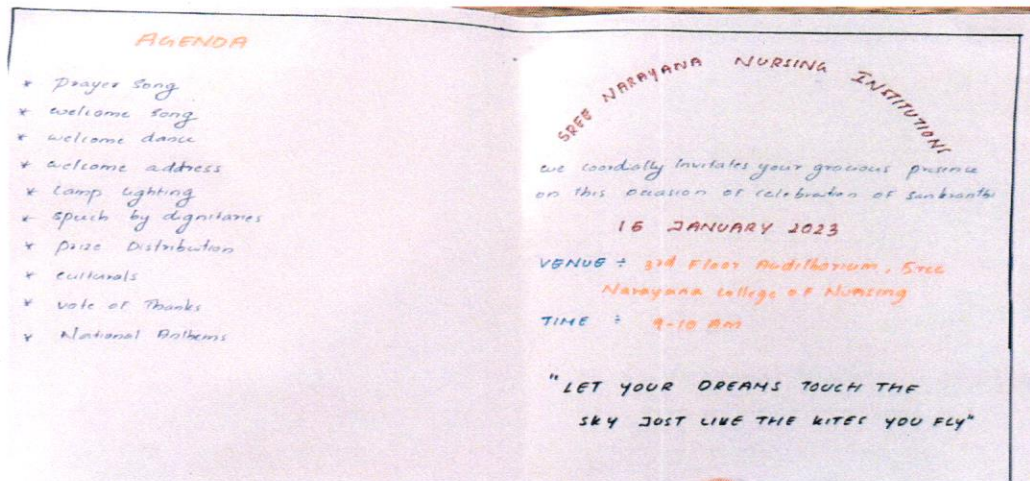 AGENDA
* Prayer song
* welcome song
* welcome dance
* welcome address
* Lamp lighting
* Speech by dignitaries
* Prize Distribution
* culturals
* vote of Thanks
* National Anthems
SREE NARAYANA NURSING INSTITUTIONS
we coordially invitates your gracious presence
on this occasion of celebration of sankranthi
16 JANUARY 2023
VENUE : 3rd Floor Auditborium, Sree
Narayana college of Nursing
TIME : 9-10 AM
"LET YOUR DREAMS TOUCH THE
SKY JUST LIKE THE KITES YOU FLY"